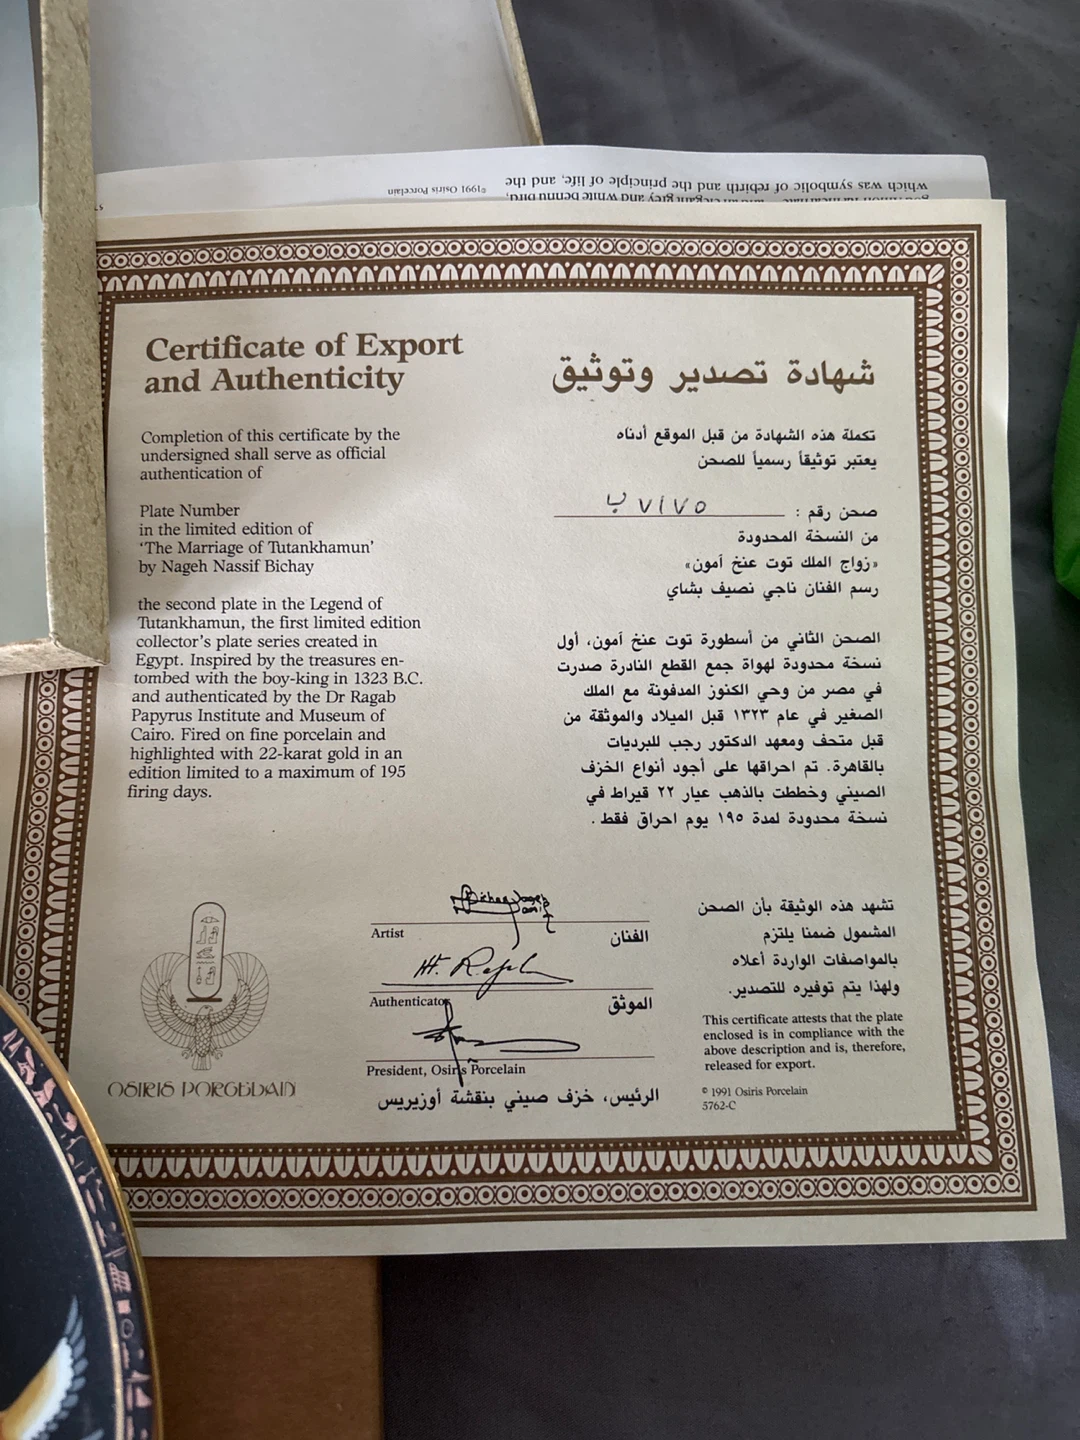 which was symbolic of rebirth and the principle of life, and the
©1991 Osiris Porcelain
Certificate of Export
and Authenticity
Completion of this certificate by the
undersigned shall serve as official
authentication of
Plate Number
in the limited edition of
‘The Marriage of Tutankhamun’
by Nageh Nassif Bichay
the second plate in the Legend of
Tutankhamun, the first limited edition
collector's plate series created in
Egypt. Inspired by the treasures en-
tombed with the boy-king in 1323 B.C.
and authenticated by the Dr Ragab
Papyrus Institute and Museum of
Cairo. Fired on fine porcelain and
highlighted with 22-karat gold in an
edition limited to a maximum of 195
firing days.
شهادة تصدير وتوثيق
تكملة هذه الشهادة من قبل الموقع أدناه
يعتبر توثيقاً رسمياً للصحن
صحن رقم : ٧١٧٥ ب
من النسخة المحدودة
«زواج الملك توت عنخ آمون»
رسم الفنان ناجي نصيف بشاي
الصحن الثاني من أسطورة توت عنخ آمون، أول
نسخة محدودة لهواة جمع القطع النادرة صدرت
في مصر من وحي الكنوز المدفونة مع الملك
الصغير في عام ١٣٢٣ قبل الميلاد والموثقة من
قبل متحف ومعهد الدكتور رجب للبرديات
بالقاهرة. تم احراقها على أجود أنواع الخزف
الصيني وخططت بالذهب عيار ٢٢ قيراط في
نسخة محدودة لمدة ١٩٥ يوم احراق فقط .
OSIRIS PORCELAIN
Artist الفنان
Authenticator الموثق
President, Osiris Porcelain
الرئيس، خزف صيني بنقشة أوزيريس
تشهد هذه الوثيقة بأن الصحن
المشمول ضمنا يلتزم
بالمواصفات الواردة أعلاه
ولهذا يتم توفيره للتصدير.
This certificate attests that the plate
enclosed is in compliance with the
above description and is, therefore,
released for export.
© 1991 Osiris Porcelain
5762-C